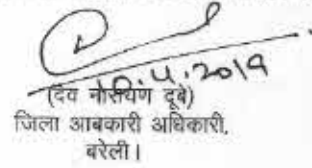 10.4.2019
(देव नारायण दूबे)
जिला आबकारी अधिकारी,
बरेली।